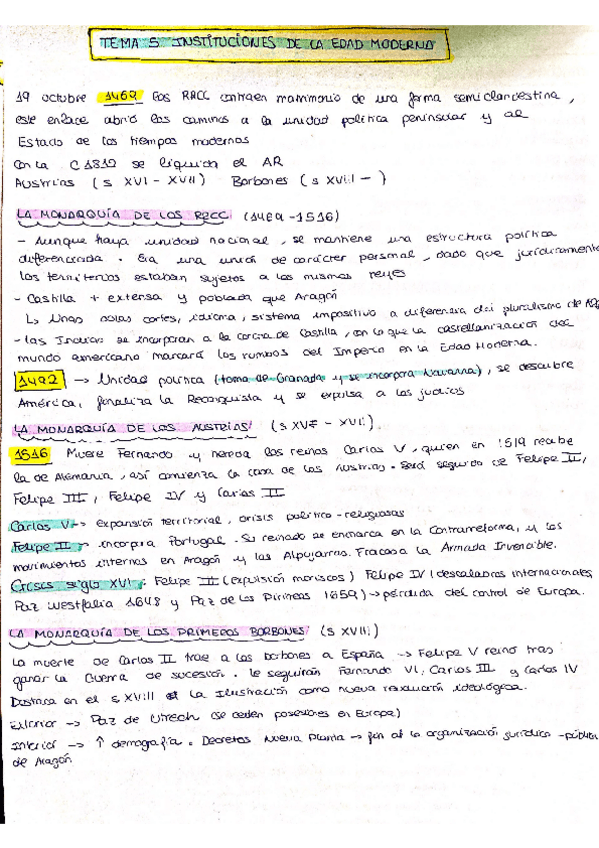 TEMA 5 INSTITUCIONES DE LA EDAD MODERNA
19 octubre 1469 Los RRCC contraen matrimonio de una forma semiclandestina,
este enlace abrió los caminos a la unidad política peninsular y al
Estado de los tiempos modernos
Con la C1812 se liquida el AR
Austrias (s XVI - XVII) Borbones (s XVIII - )
LA MONARQUÍA DE LOS RRCC (1469 -1516)
- Aunque haya unidad nacional, se mantiene una estructura política
diferenciada. Era una unión de carácter personal, dado que jurídicamente
los territorios estaban sujetos a los mismos reyes
- Castilla + extensa y poblada que Aragón
↳ Unas solas cortes, idioma, sistema impositivo a diferencia del pluralismo de
- Las Indias se incorporan a la corona de Castilla, con lo que la castellanización del
mundo americano marcará los rumbos del Imperio en la Edad Moderna.
1492 → Unidad política (toma de Granada y se incorpora Navarra), se descubre
América, finaliza la Reconquista y se expulsa a los judíos
LA MONARQUÍA DE LOS AUSTRIAS (s XVI - XVII)
1516 Muere Fernando y hereda los reinos Carlos V, quien en 1519 recibe
la de Alemania, así comienza la casa de los Austrias. Será seguido de Felipe II,
Felipe III, Felipe IV y Carlos II
Carlos V → expansión territorial, crisis político-religiosas
Felipe II → incorpora Portugal. Su reinado se enmarca en la Contrarreforma, y los
movimientos internos en Aragón y las Alpujarras. Fracasa la Armada Invencible.
Crisis siglo XVI: Felipe III (expulsión moriscos) Felipe IV (descalabros internacionales,
Paz Westfalia 1648 y Paz de los Pirineos 1659) → pérdida del control de Europa.
LA MONARQUÍA DE LOS PRIMEROS BORBONES (s XVIII)
La muerte de Carlos II trae a los borbones a España → Felipe V reinó tras
ganar la Guerra de sucesión. Le seguirán Fernando VI, Carlos III y Carlos IV
Destaca en el s XVIII la Ilustración como nueva ideológica.
Exterior → Paz de Utrech (se ceden posesiones en Europa)
Interior → ↑ demografía. Decretos Nueva Planta → fin a la organización jurídico-pública
de Aragón